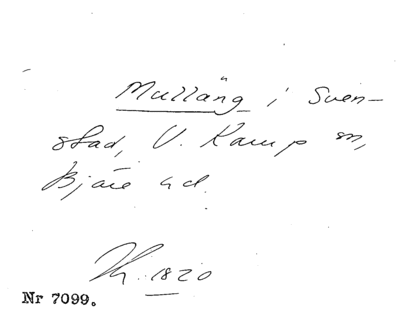 Mulläng i Sven-
stad, V. Karup sn,
Bjäre hd.
Kh. 1820
Nr 7099.